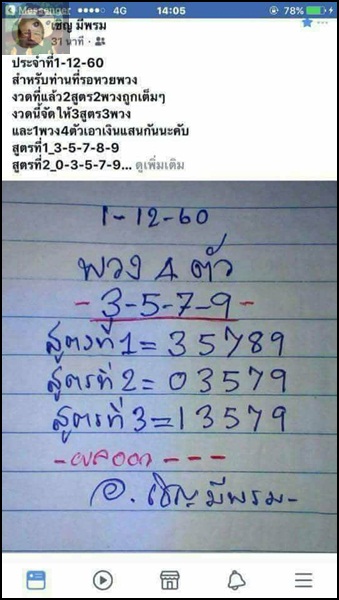 Messenger 4G 14:05 78%
เชิญ มีพรม
31 นาที ·
ประจำที่1-12-60
สำหรับท่านที่รอหวยพวง
งวดที่แล้ว2สูตร2พวงถูกเต็มๆ
งวดนี้จัดให้3สูตร3พวง
และ1พวง4ตัวเอาเงินแสนกันนะคับ
สูตรที่1_3-5-7-8-9
สูตรที่2_0-3-5-7-9... ดูเพิ่มเติม
1-12-60
พวง 4 ตัว
-3-5-7-9-
สูตรที่ 1 = 35789
สูตรที่ 2 = 03579
สูตรที่ 3 = 13579
-ผลออก - - -
อ. เชิญ มีพรม-